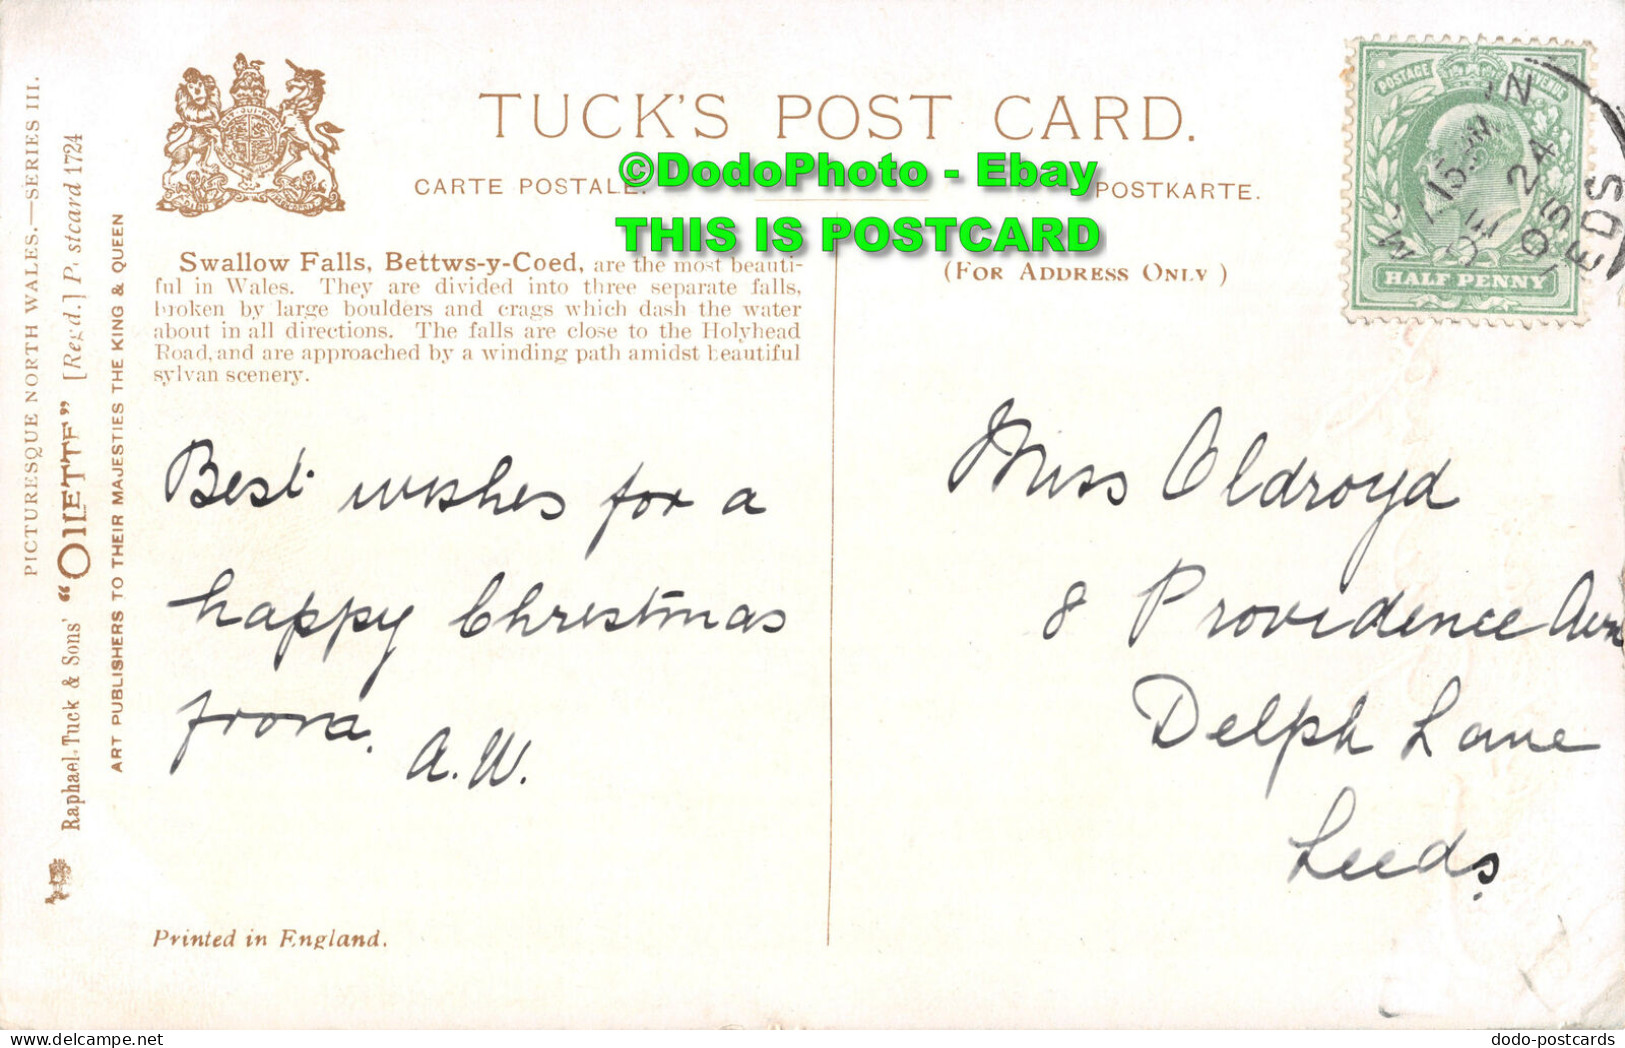 PICTURESQUE NORTH WALES.—SERIES III.
Raphael Tuck & Sons' "OILETTE" [Regd.] Postcard 1724
ART PUBLISHERS TO THEIR MAJESTIES THE KING & QUEEN
TUCK'S POST CARD.
CARTE POSTALE. POSTKARTE.
©DodoPhoto - Ebay
THIS IS POSTCARD
(FOR ADDRESS ONLY)
POSTAGE REVENUE
HALF PENNY
24
EDS
Swallow Falls, Bettws-y-Coed, are the most beauti-
ful in Wales. They are divided into three separate falls,
broken by large boulders and crags which dash the water
about in all directions. The falls are close to the Holyhead
Road, and are approached by a winding path amidst beautiful
sylvan scenery.
Best wishes for a
happy Christmas
from.
A.W.
Miss Oldroyd
8 Providence Aven
Delph Lane
Leeds.
Printed in England.
dodo-postcards